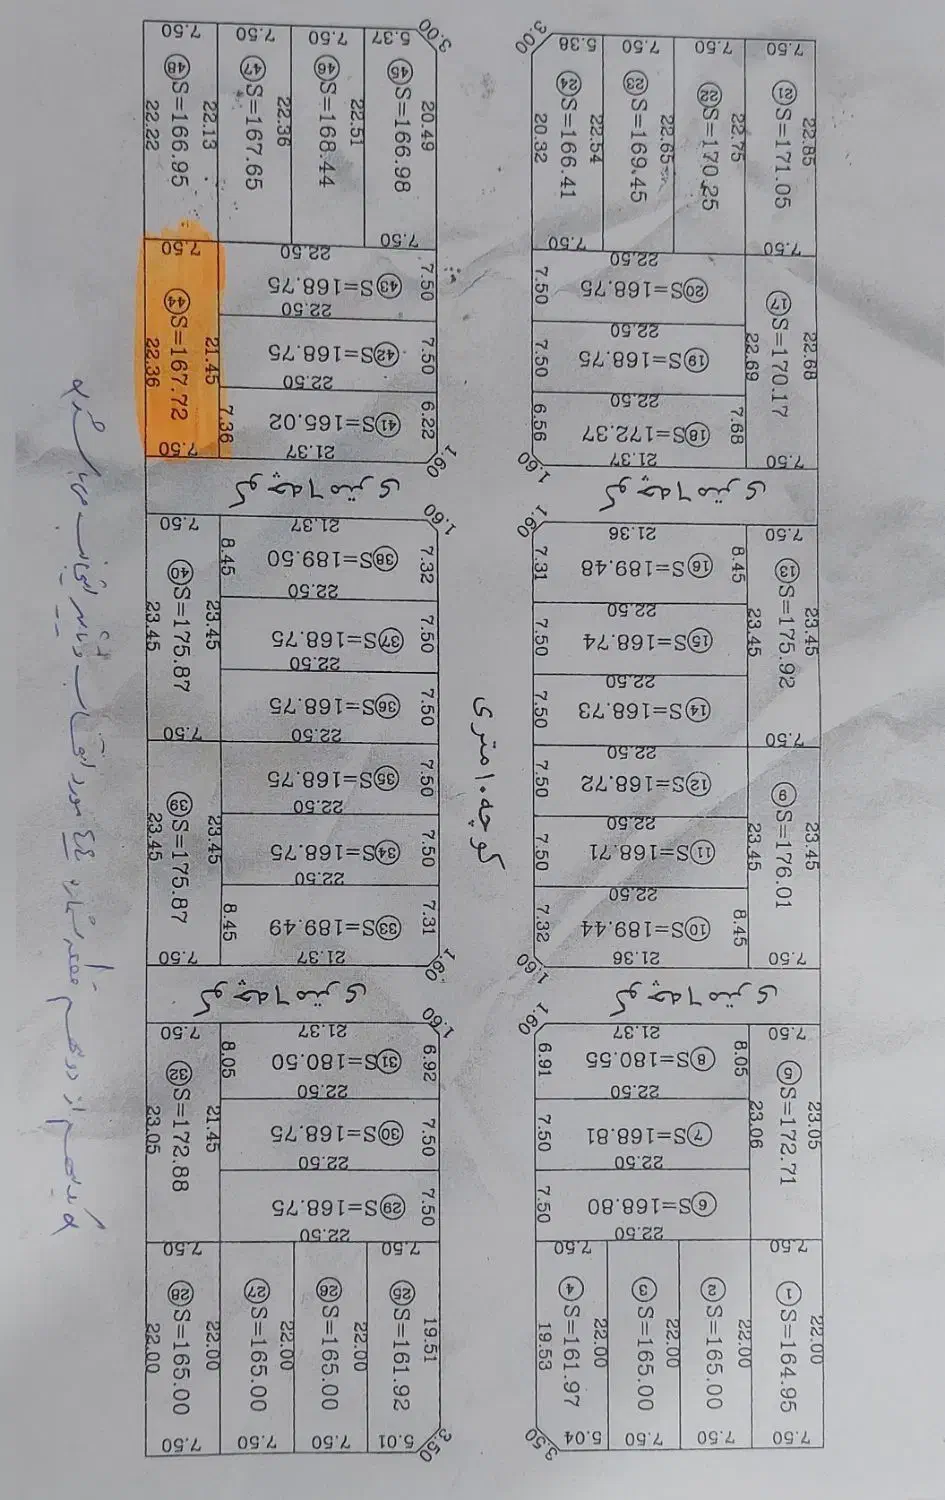 7.50 7.50 7.50 5.37 3.00
㊽S=166.95 22.13 22.22
㊼S=167.65 22.36
㊻S=168.44 22.51
㊺S=166.98 20.49
7.50 22.50 7.50
㊹S=167.72 21.45 22.36 7.50
㊸S=168.75 7.50
22.50
㊷S=168.75 7.50
22.50
㊶S=165.02 7.36 6.22
21.37 1.60
کوچه ۶ متری
7.50 21.37 1.60
㊳S=189.50 8.45 7.32
22.50
㊵S=175.87 23.45 23.45 7.50
㊲S=168.75 7.50
22.50
㊱S=168.75 7.50
22.50
㉟S=168.75 7.50
22.50
㊴S=175.87 23.45 23.45 7.50
㉞S=168.75 7.50
22.50
㉝S=189.49 8.45 7.31
21.37 1.60
کوچه ۶ متری
7.50 21.37 1.60
㉛S=180.50 8.05 6.92
22.50
㉜S=172.88 21.45 23.05 7.50
㉚S=168.75 7.50
22.50
㉙S=168.75 7.50
22.50 7.50
㉘S=165.00 22.00 22.00
㉗S=165.00 22.00
㉖S=165.00 22.00
㉕S=161.92 19.51
7.50 7.50 7.50 5.01 3.50
کوچه ۱۰ متری
3.00 5.38 7.50 7.50 7.50
㉔S=166.41 22.54 20.32
㉓S=169.45 22.65
㉒S=170.25 22.75
㉑S=171.05 22.85
7.50 22.50 7.50
⑳S=168.75 7.50
22.50
⑰S=170.17 22.68 22.69 7.50
⑲S=168.75 7.50
22.50
⑱S=172.37 7.68 6.56
21.37 1.60
کوچه ۶ متری
1.60 21.36 7.50
⑯S=189.48 8.45 7.31
22.50
⑬S=175.92 23.45 23.45 7.50
⑮S=168.74 7.50
22.50
⑭S=168.73 7.50
22.50
⑫S=168.72 7.50
22.50
⑨S=176.01 23.45 23.45 7.50
⑪S=168.71 7.50
22.50
⑩S=189.44 8.45 7.32
21.36 1.60
کوچه ۶ متری
1.60 21.37 7.50
⑧S=180.55 8.05 6.91
22.50
⑤S=172.71 23.05 23.06 7.50
⑦S=168.81 7.50
22.50
⑥S=168.80 7.50
22.50 7.50
④S=161.97 22.00 19.53
③S=165.00 22.00
②S=165.00 22.00
①S=164.95 22.00
3.50 5.04 7.50 7.50 7.50